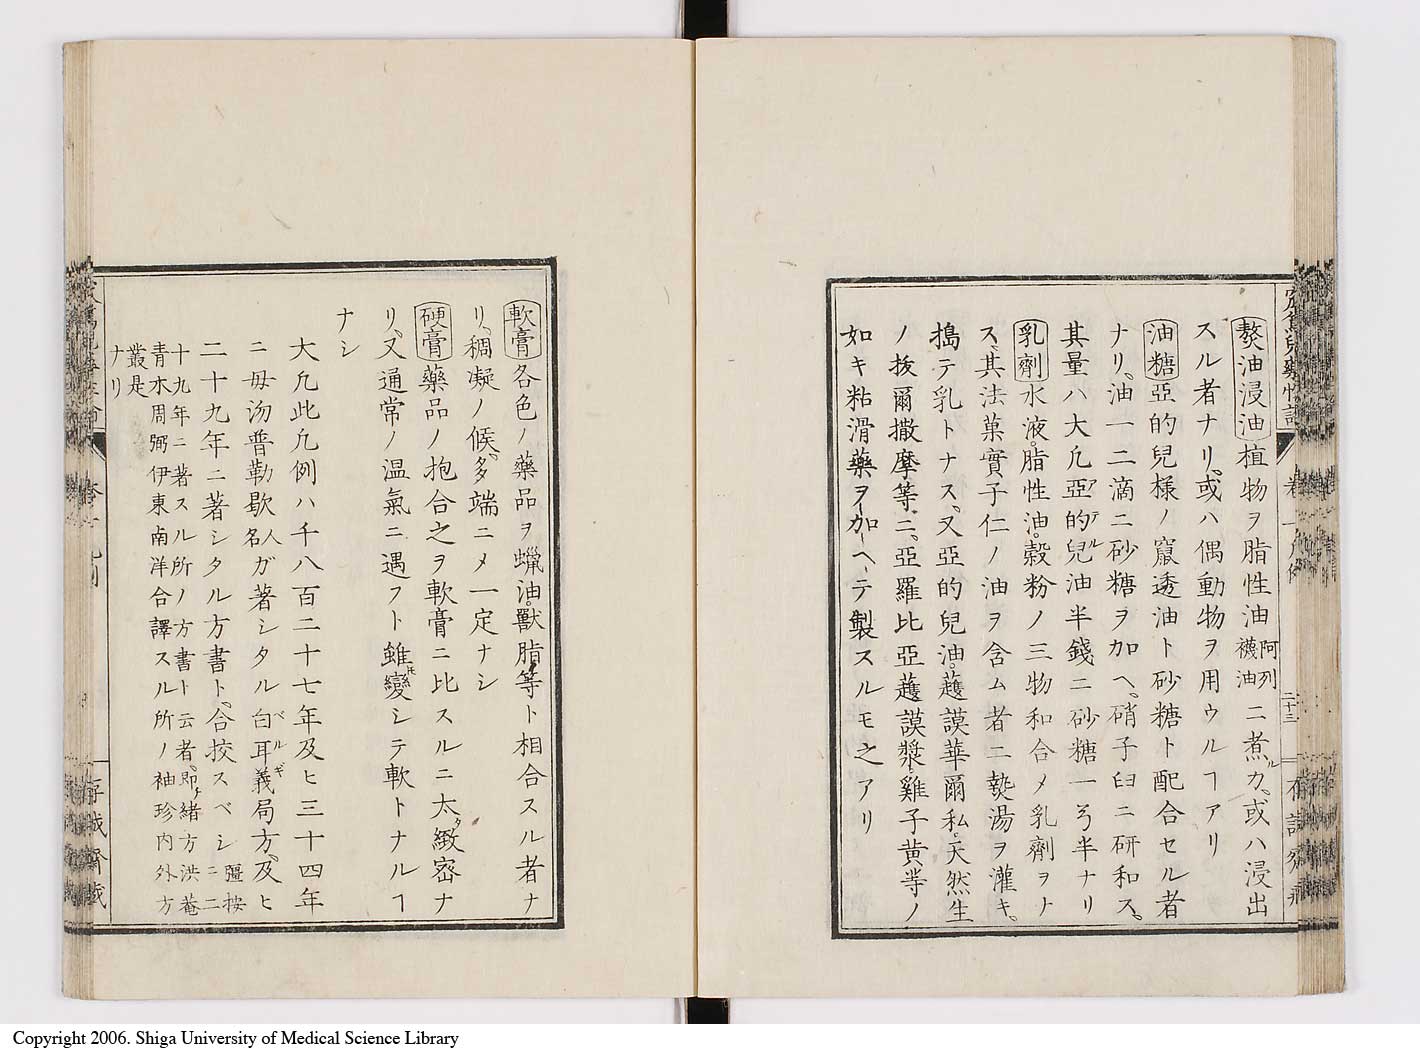 熬油浸油植物ヲ脂性油阿列襪油ニ煮ルカ、或ハ浸出
スル者ナリ、或ハ偶動物ヲ用ウルヿアリ
油糖亞的兒様ノ竄透油ト砂糖ト配合セル者
ナリ、油一二滴ニ砂糖ヲ加ヘ、硝子臼ニ研和ス、
其量ハ大凡亞的兒油半錢ニ砂糖一弓半ナリ
乳劑水液。脂性油。穀粉ノ三物和合メ乳劑ヲナ
ス、其法菓實子仁ノ油ヲ含ム者ニ熱湯ヲ灌キ、
搗テ乳トナス、又亞的兒油。護謨華爾私。天然生
ノ抜爾撒摩等ニ、亞羅比亞護謨漿、雞子黄等ノ
如キ粘滑藥ヲ加ヘテ製スルモ之アリ
二十三
軟膏各色ノ藥品ヲ蠟油。獸脂等ト相合スル者ナ
リ、稠凝ノ候、多端ニメ一定ナシ
硬膏藥品ノ抱合之ヲ軟膏ニ比スルニ太タ緻密ナ
リ、又通常ノ温氣ニ遇フト雖𪜈變シテ軟トナルヿ
ナシ
大凡此凡例ハ千八百二十七年及ヒ三十四年
ニ毋汤普勒歇人名ガ著シタル白耳義ベルギ局方、及ヒ
二十九年ニ著シタル方書ト、合挍スベシ彊按ニ二
十九年ニ著スル所ノ方書ト云者、即チ緒方洪菴
青木周弼伊東南洋合譯スル所ノ袖珍内外方
叢是
ナリ